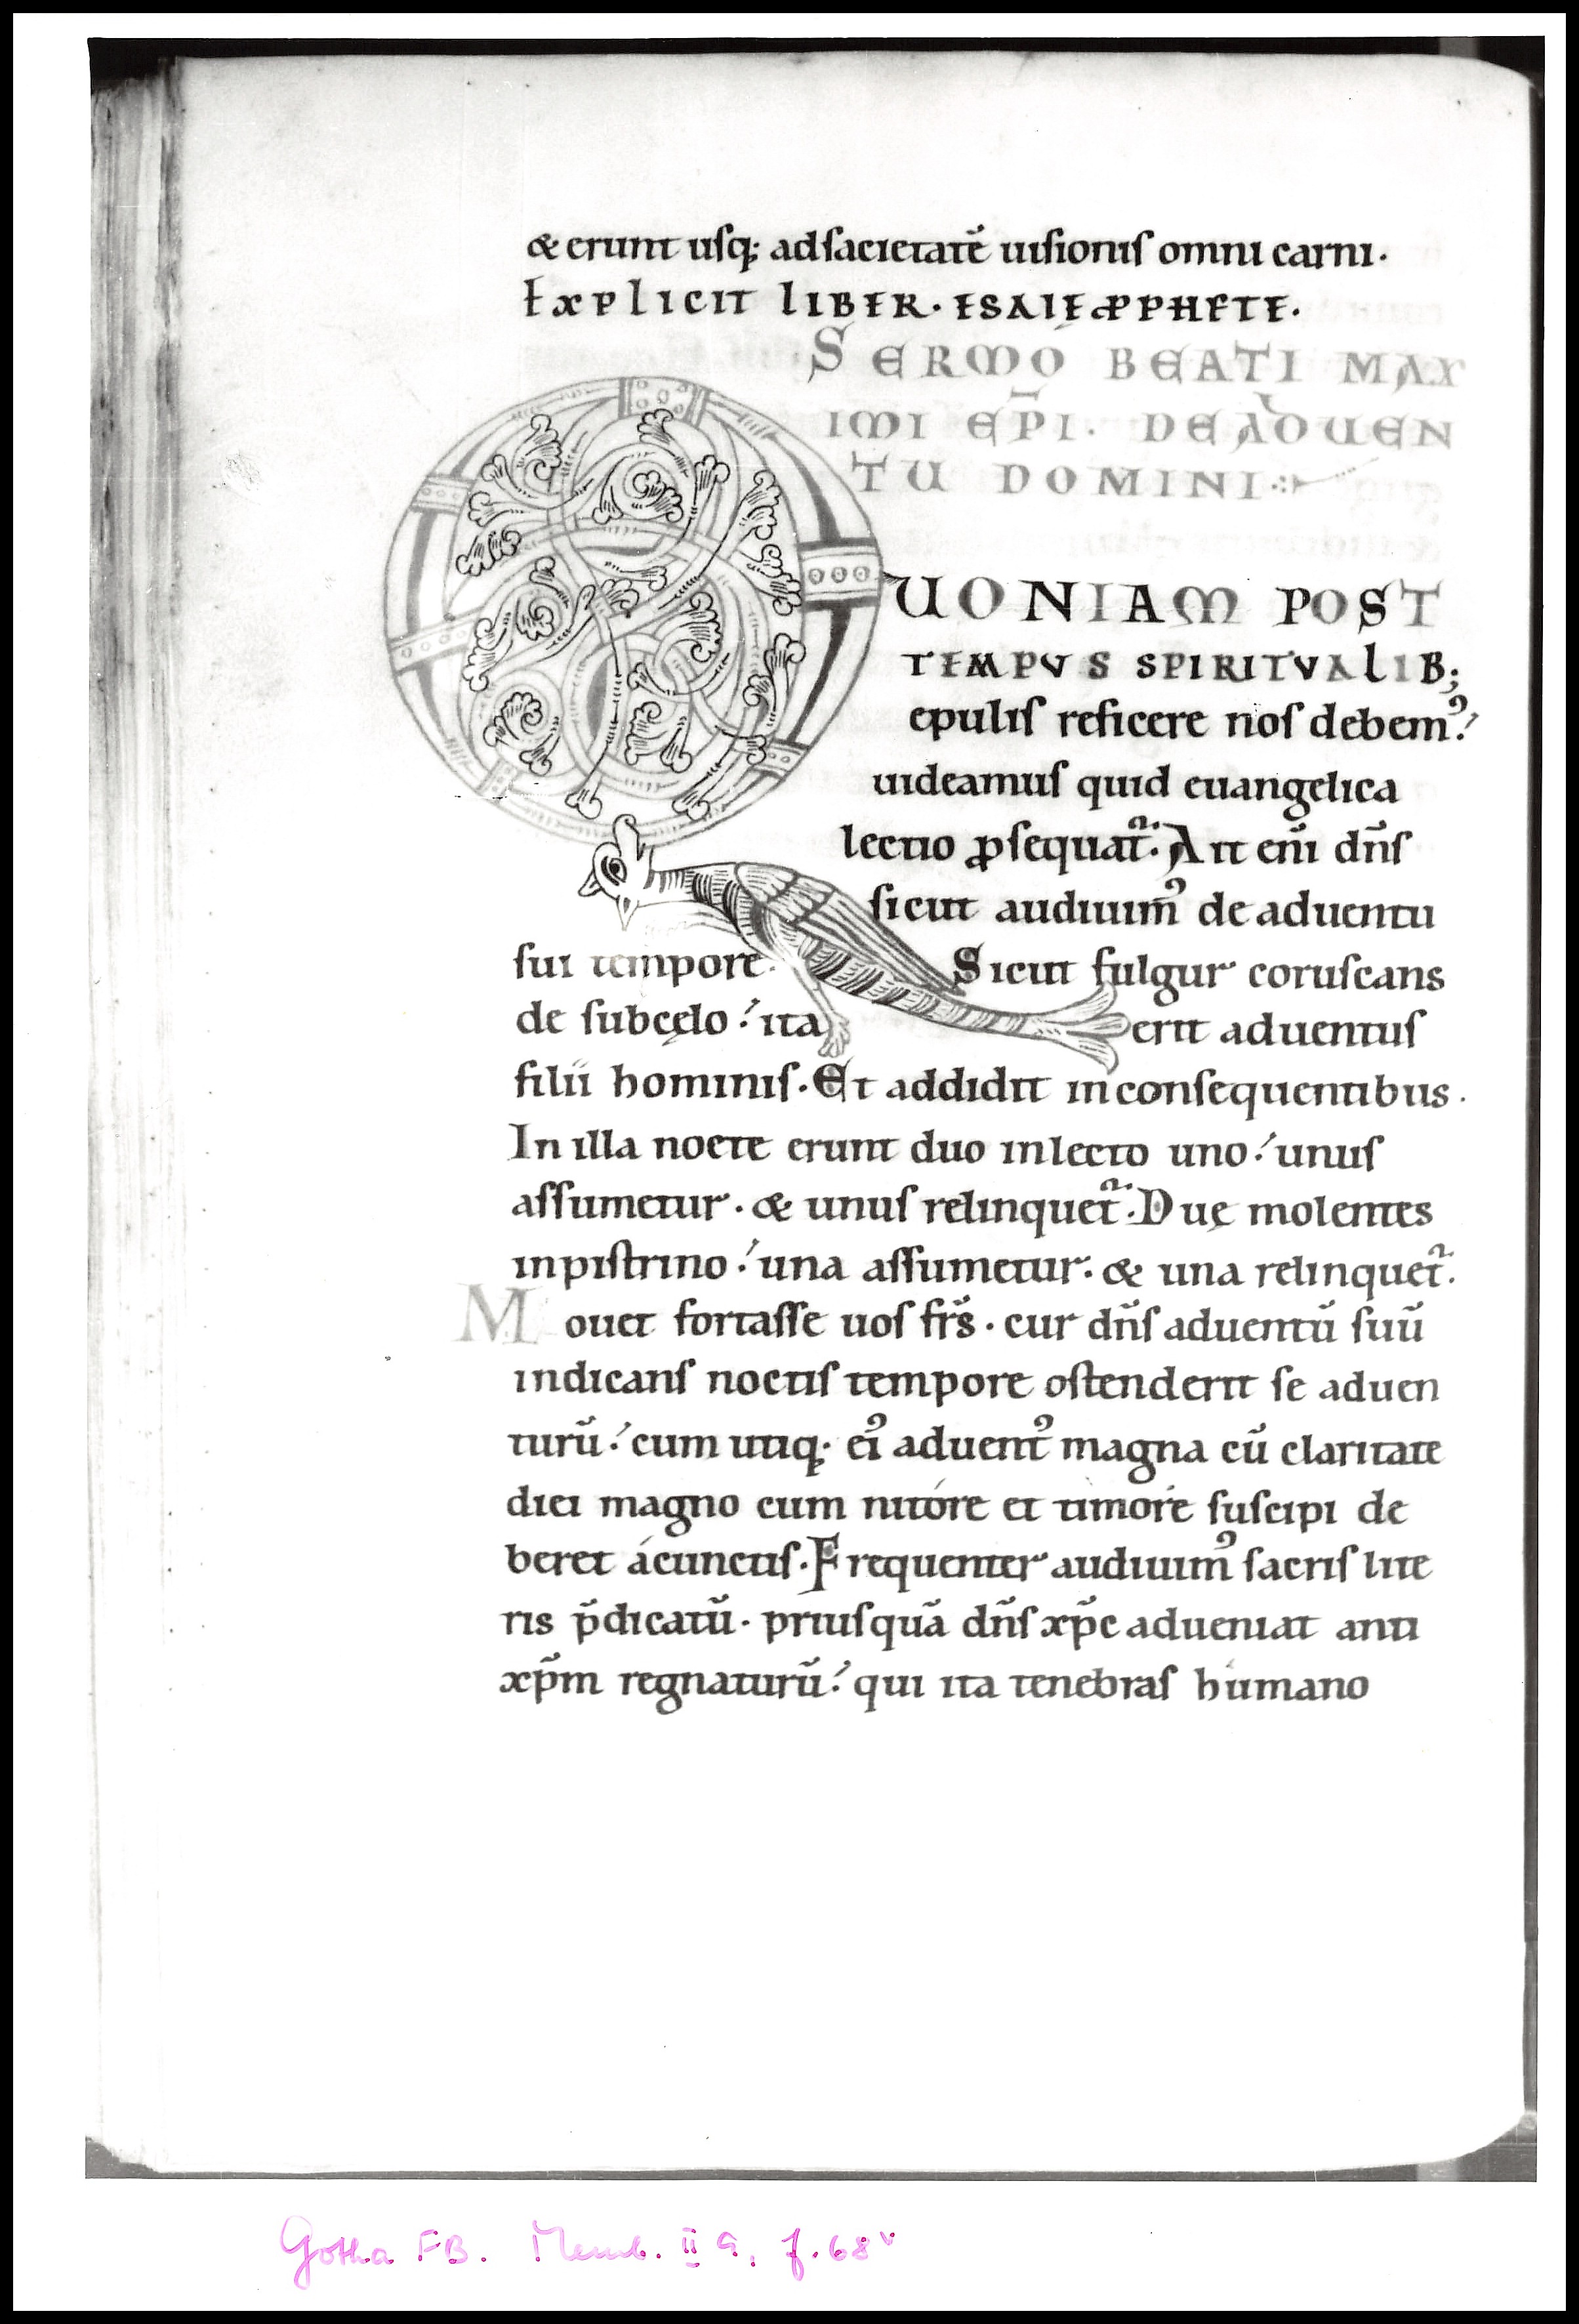 & erunt uſq; adſacietatē uiſioniſ omni carni.
Explicit LIBER. ESAIE PPHETE.
SERMO BEATI MAX
IMI EP̄I. DE ADUEN
TU DOMINI
QUONIAM POST
TEMPVS SPIRITVALIB;
epuliſ reficere noſ debem᷒.
uideamuſ quid euangelica
lectio ꝓſequat᷑. Ait eni̅ dn̅ſ
ſicut audiuim᷒ de aduentu
ſui tempore. Sicut fulgur coruſcans
de ſubcęlo. ita erit aduentuſ
filii hominiſ. Et addidit inconſequentibus.
In illa nocte erunt duo inlecto uno. unuſ
aſſumetur. & unuſ relinquet᷑. Duę molentes
inpiſtrino. una aſſumetur. & una relinquet᷑.
Mouet fortaſſe uoſ fr̅s. cur dn̅ſ aduentū ſuū
indicanſ noctiſ tempore oſtenderit ſe aduen
turū. cum utiq; ei᷒ aduent᷒ magna cū claritate
diei magno cum nitóre et timore ſuſcipi de
beret ácunctiſ. Frequenter audiuim᷒ ſacriſ lite
ris p̅dicatū. priuſquā dn̅ſ xp̅c adueniat anti
xp̅m regnaturū. qui ita tenebraſ humano
Gotha FB. Memb. II 9, f. 68v